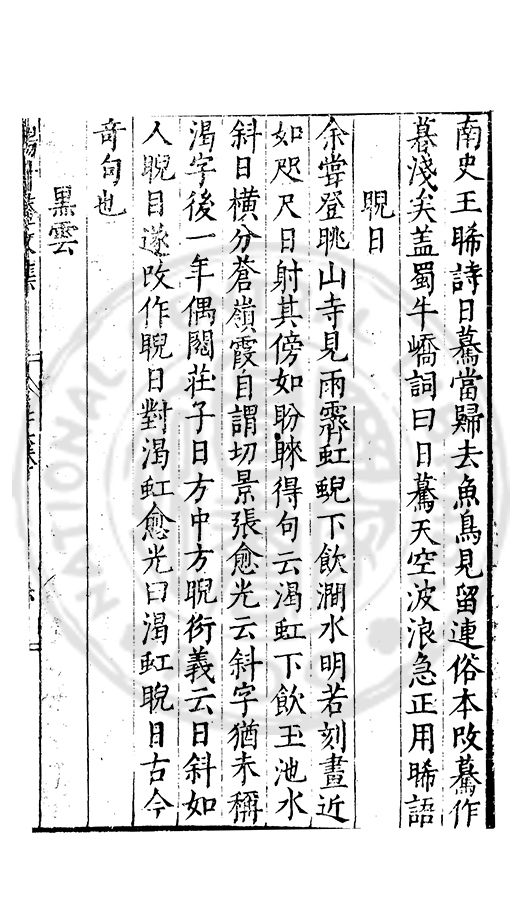 南史王晞詩日驀當歸去魚鳥見留連俗本改驀作
暮淺矣盖蜀牛嶠詞曰日驀天空波浪急正用晞語
睨日
余嘗登眺山寺見雨霽虹蜺下飲澗水明若刻畫近
如咫尺日射其傍如盼睞得句云渴虹下飲玉池水
斜日橫分蒼嶺霞自謂切景張愈光云斜字猶未稱
渴字後一年偶閱莊子日方中方睨衍義云日斜如
人睨目遂改作睨日對渴虹愈光曰渴虹睨日古今
奇句也
黑雲